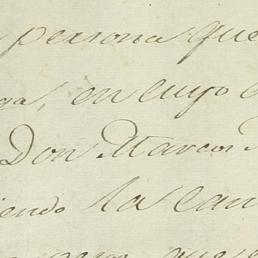 persona que
ga, en cuyo
Don Marcos
iendo la can
que